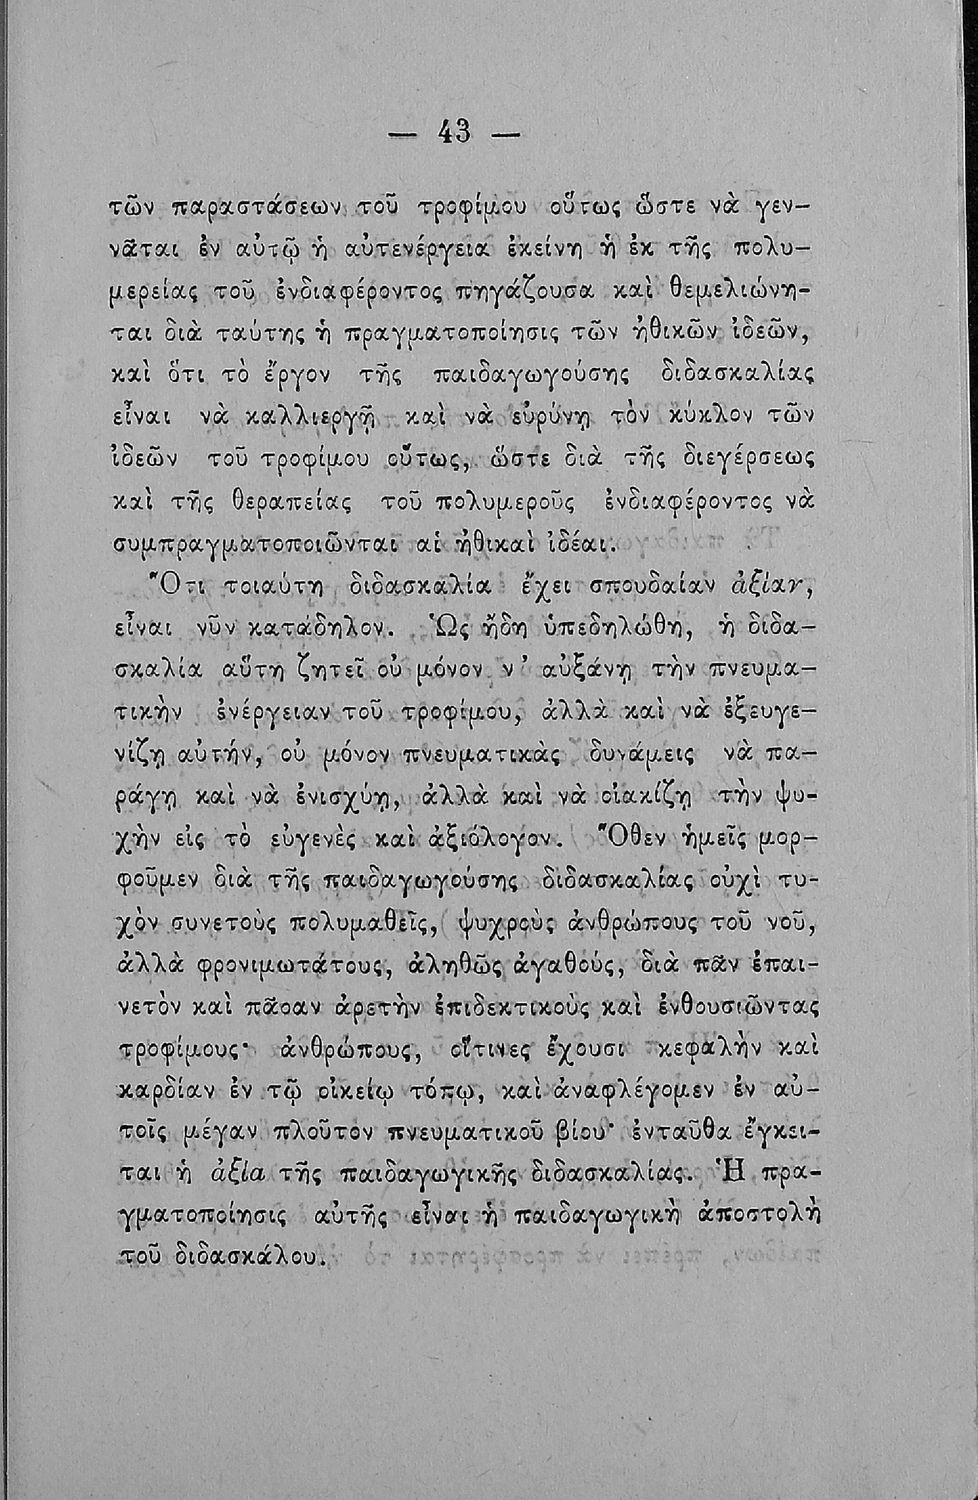 — 43 —
τῶν παραστάσεων τοῦ τροφίμου οὕτως ὥστε νὰ γεν–
νᾶται ἐν αὐτῷ ἡ αὐτενέργεια ἐκείνη ἡ ἐκ τῆς πολυ–
μερείας τοῦ ἐνδιαφέροντος πηγάζουσα καὶ θεμελιώνη-
ται διὰ ταύτης ἡ πραγματοποίησις τῶν ἠθικῶν ἰδεῶν,
καὶ ὅτι τὸ ἔργον τῆς παιδαγωγούσης διδασκαλίας
εἶναι νὰ καλλιεργῇ καὶ νὰ εὐρύνῃ τὸν κύκλον τῶν
ἰδεῶν τοῦ τροφίμου οὕτως, ὥστε διὰ τῆς διεγέρσεως
καὶ τῆς θεραπείας τοῦ πολυμεροῦς ἐνδιαφέροντος νὰ
συμπραγματοποιῶνται αἱ ἠθικαὶ ἰδέαι.
Ὅτι τοιαύτη διδασκαλία ἔχει σπουδαίαν ἀξίαν,
εἶναι νῦν κατάδηλον. Ὡς ἤδη ὑπεδηλώθη, ἡ διδα–
σκαλία αὕτη ζητεῖ οὐ μόνον ν’ αὐξάνῃ τὴν πνευμα–
τικὴν ἐνέργειαν τοῦ τροφίμου, ἀλλὰ καὶ νὰ ἐξευγε–
νίζῃ αὐτήν, οὐ μόνον πνευματικὰς δυνάμεις νὰ πα–
ράγῃ καὶ νὰ ἐνισχύῃ, ἀλλὰ καὶ νὰ οἰακίζῃ τὴν ψυ-
χὴν εἰς τὸ εὐγενὲς καὶ ἀξιόλογον. Ὅθεν ἡμεῖς μορ–
φοῦμεν διὰ τῆς παιδαγωγούσης διδασκαλίας οὐχὶ τυ-
χὸν συνετοὺς πολυμαθεῖς, ψυχροὺς ἀνθρώπους τοῦ νοῦ,
ἀλλὰ φρονιμωτάτους, ἀληθῶς ἀγαθούς, διὰ πᾶν ἐπαι-
νετὸν καὶ πᾶσαν ἀρετὴν ἐπιδεκτικοὺς καὶ ἐνθουσιῶντας
τροφίμους· ἀνθρώπους, οἵτινες ἔχουσι κεφαλὴν καὶ
καρδίαν ἐν τῷ οἰκείῳ τόπῳ, καὶ ἀναφλέγομεν ἐν αὐ–
τοῖς μέγαν πλοῦτον πνευματικοῦ βίου· ἐνταῦθα ἔγκει-
ται ἡ ἀξία τῆς παιδαγωγικῆς διδασκαλίας. Ἡ πρα-
γματοποίησις αὐτῆς εἶναι ἡ παιδαγωγικὴ ἀποστολὴ
τοῦ διδασκάλου.